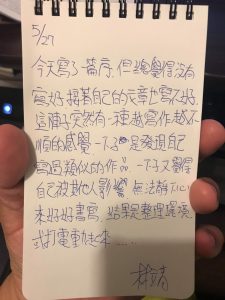 5/27
今天寫了一篇序,但總覺得沒有
寫好.接著自己的文章也寫不好.
這陣子突然有一種越寫作越不
順的感覺 一下子是發現自己
寫過類似的作品 一下子又覺得
自己被其他人影響 無法靜下心
來好好書寫.結果是整理環境
或打電動起來......